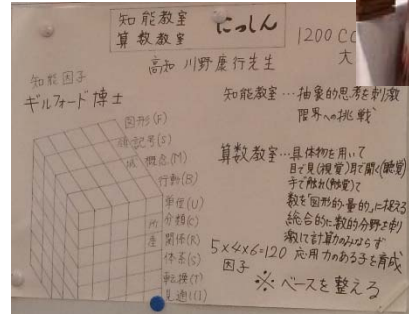 知能教室
算数教室
にっしん
1200CC
大
高知 川野康行先生
知能因子
ギルフォード博士
図形(F)
記号(S)
概念(M)
行動(B)
単位(U)
分類(C)
関係(R)
体系(S)
転換(T)
見通し(I)
所産
知能教室…抽象的思考を刺激
限界への挑戦
算数教室…具体物を用いて
目で見(視覚)耳で聞く(聴覚)
手で触れ(触覚)て
数を「図形的・量的」に捉える
総合的に数的分野を刺
激して計算力のみならず
5×4×6=120 応用力のある子を育成
因子
※ベースを整える